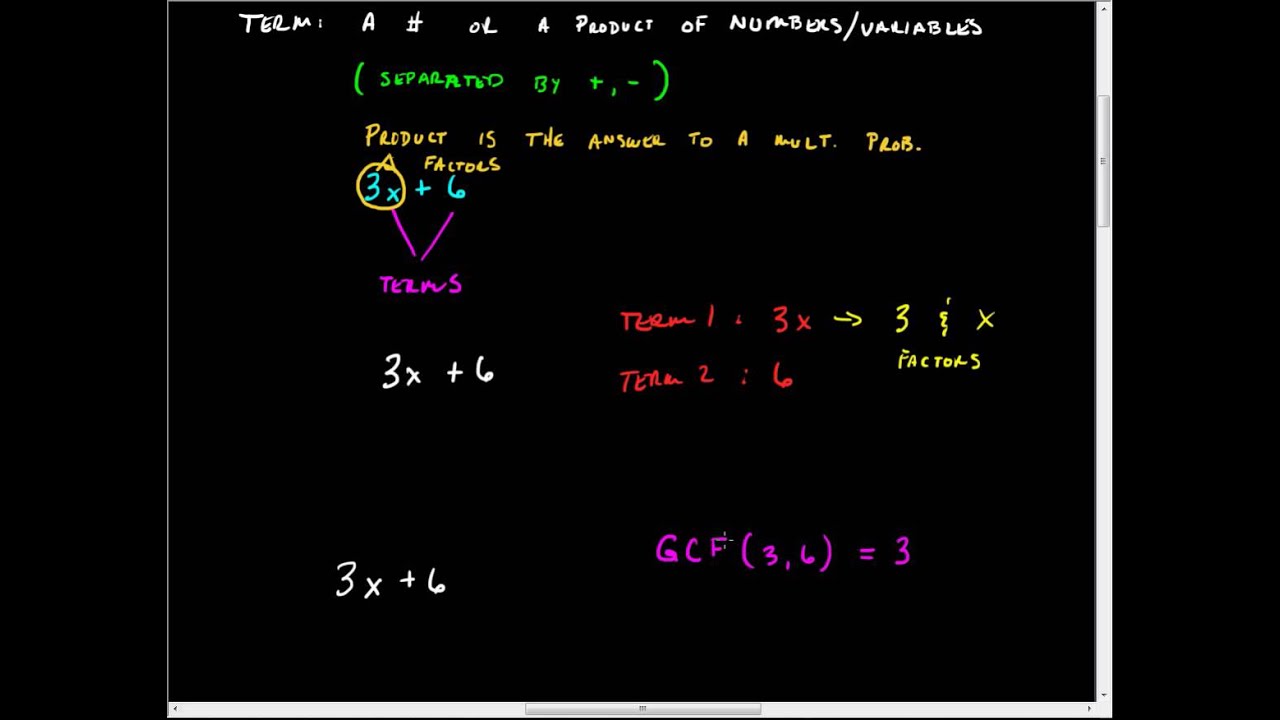 TERM: A # OR A PRODUCT OF NUMBERS/VARIABLES
(SEPARATED BY +, -)
PRODUCT IS THE ANSWER TO A MULT. PROB.
FACTORS
3x + 6
TERMS
TERM 1 : 3x → 3 & X
FACTORS
3x + 6
TERM 2 : 6
GCF(3,6) = 3
3x + 6